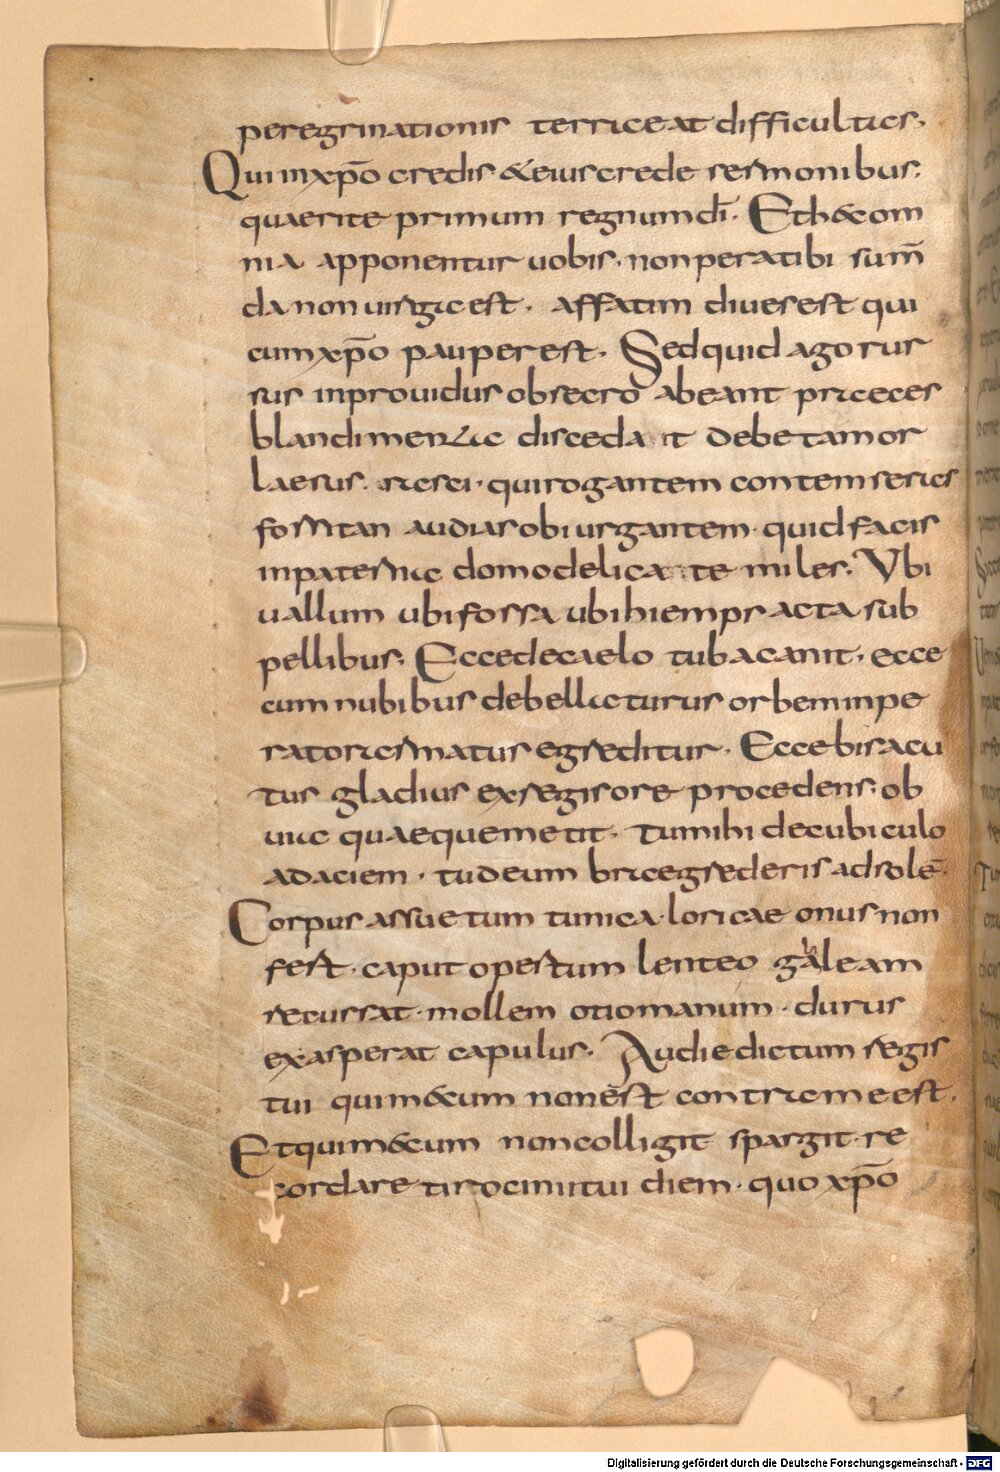 peregrinationis terreat difficultas.
Qui in xp̄o credis & eius crede sermonibus.
quaerite primum regnum dī. Et h&c om
nia apponentur uobis. non pera tibi sum̄
da non uirga est. affatim diues est qui
cum xp̄o pauper est. Sed quid ago rur
sus inprouidus obsecro abeant praeces
blandimenta discedant debet amor
laesus irasci. qui rogantem contemseras
forsitan audias obiurgantem. quid facis
in paterna domo delicate miles. Vbi
uallum ubi fossa ubi hiemps acta sub
pellibus. Ecce de caelo tuba canit. ecce
cum nubibus debellaturus orbem inpe
rator armatus egreditur. Ecce bis acu
tus gladius ex regis ore procedens. ob
uia quaeque metit. tu mihi de cubiculo
ad aciem. tu de umbra egrederis ad solē.
Corpus assuetum tunica loricae onus non
fert. caput opertum lenteo galeam
recussat. mollem otio manum. durus
exasperat capulus. Audi edictum regis
tui qui m&cum non est contra me est.
Et qui m&cum non colligit spargit. re
cordare tirocinii tui diem. quo xp̄o
Digitalisierung gefördert durch die Deutsche Forschungsgemeinschaft - DFG